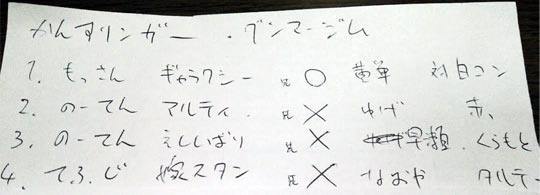 かんすリンガー ・ グンマージム
1. もっさん ギャラクシー 兄 ○ 黄単 対白コン
2. のーてん マルティ. 兄 × ゆげ 赤、
3. のーてん えしいばり 兄 × 早瀬. くらもと
4. てふじ 嫁スタン 兄 × なおや タルテー